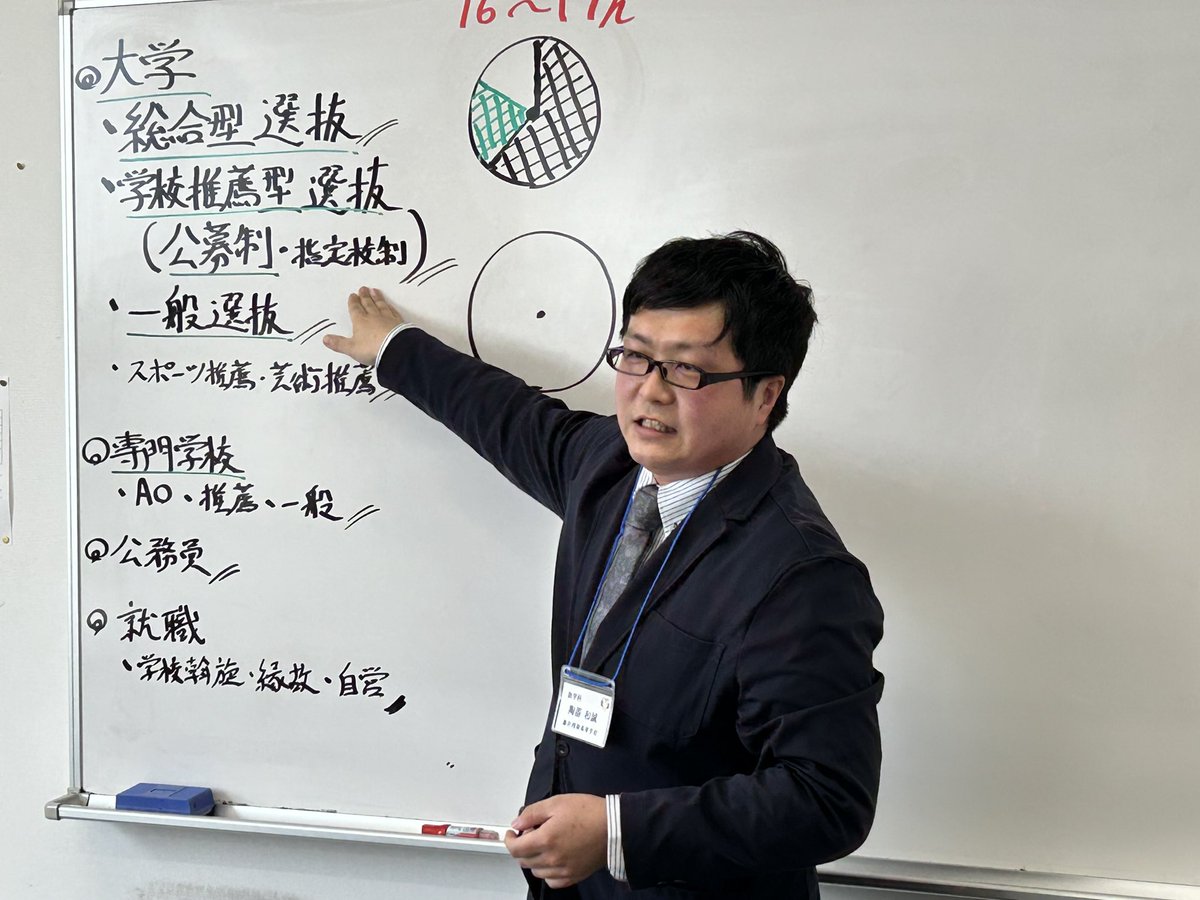 16〜17人
大学
・総合型選抜
・学校推薦型選抜
(公募制・指定校制)
・一般選抜
・スポーツ推薦・芸術推薦
専門学校
・AO、推薦、一般
公務員
就職
・学校斡旋・縁故・自営
陶器 和誠